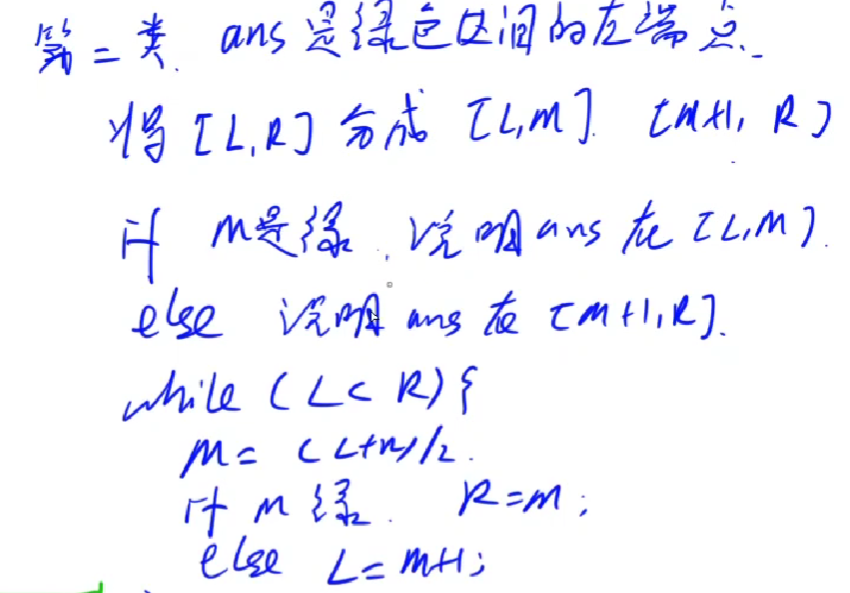 第二类. ans是绿色区间的左端点.
将[L,R]分成[L,M]. [M+1, R]
if M是绿, 说明ans在[L,M].
else 说明ans在[M+1,R].
while (L<R){
M=(L+R)/2.
if M绿. R=M;
else L=M+1;